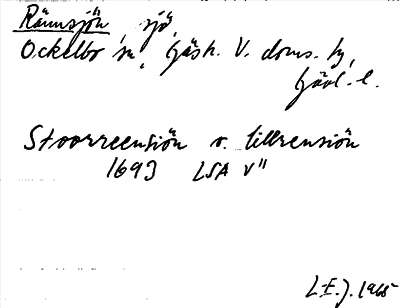 Rännsjön, sjö,
Ockelbo sn, Gästr. V. doms. hd,
Gävl. l.
Stoorreensiön o. lillrensiön
1693 LSA V"
L.E.J. 1965